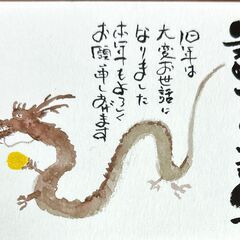 旧年は
大変お世話に
なりました
本年もよろしく
お願い申しあげます